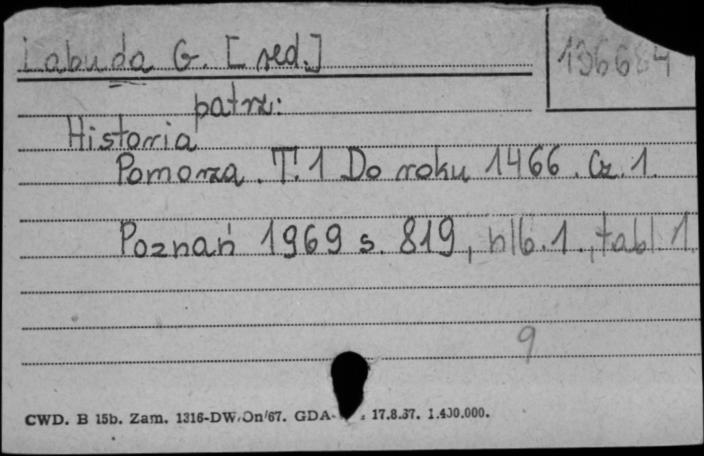 Labuda G. [red.]
136684
patrz:
Historia
Pomorza. T. 1 Do roku 1466. Cz. 1.
Poznań 1969 s. 819, nlb. 1., tabl. 1.
9
CWD. B 15b. Zam. 1316-DW/On/67. GDA- 17.8.67. 1.400.000.